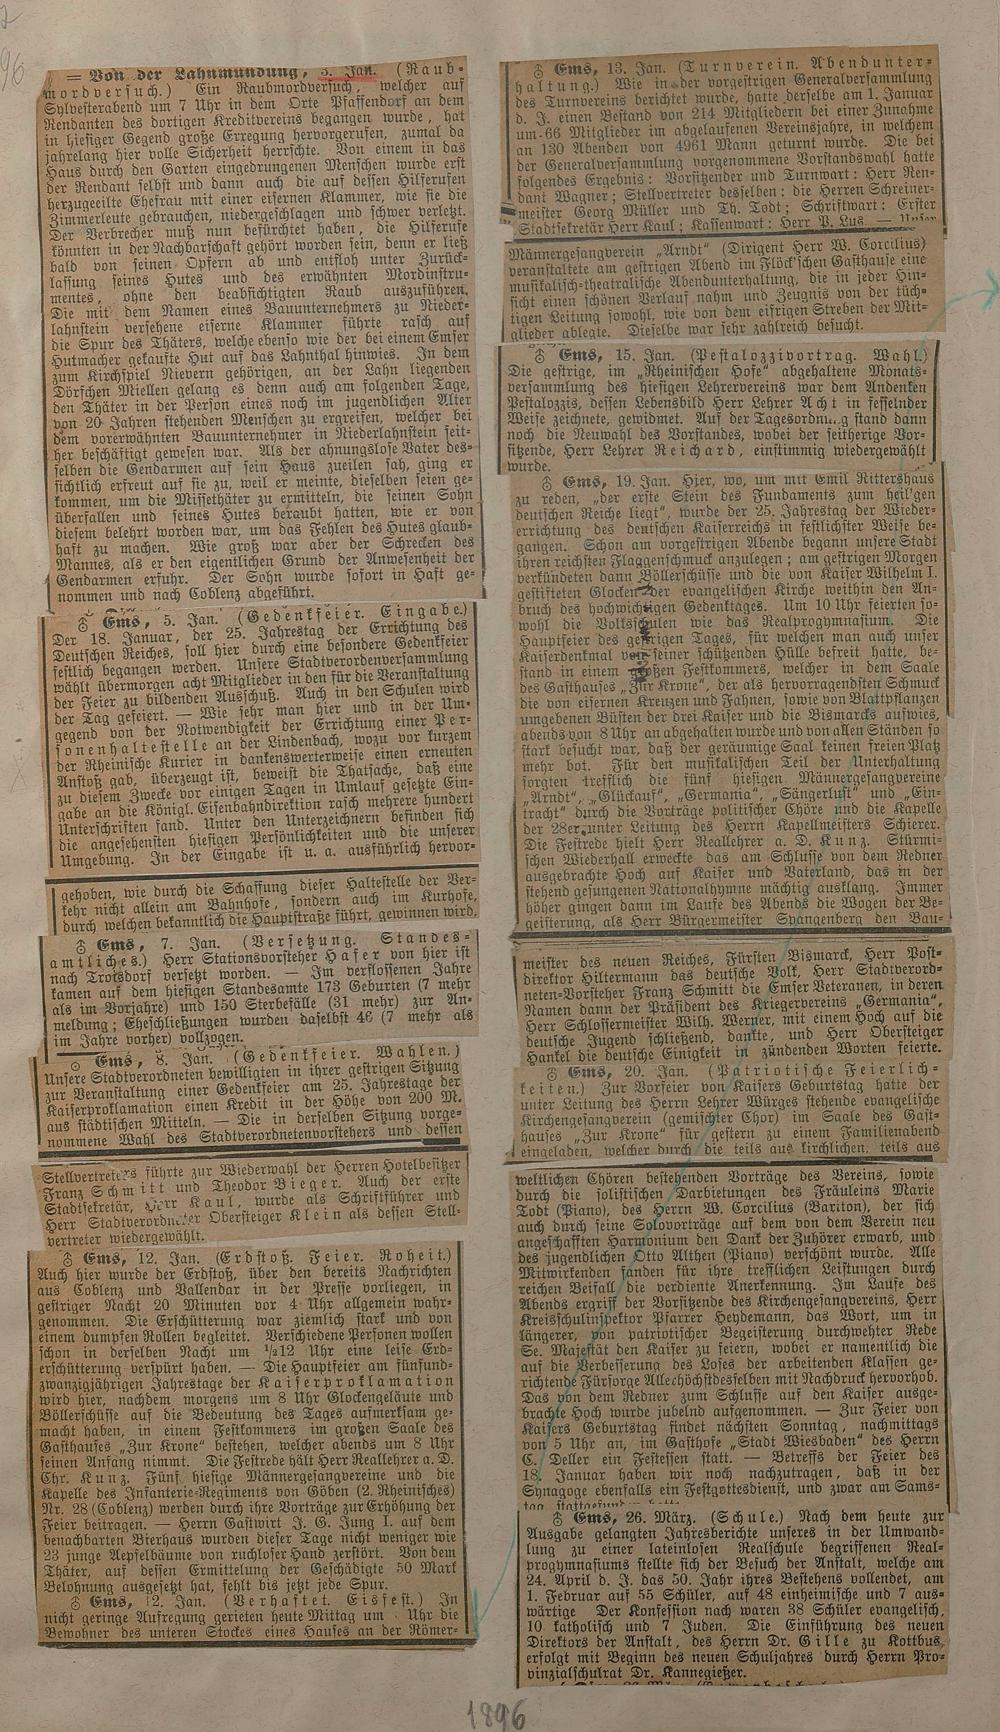 96
= Von der Lahnmündung, 3. Jan. (Raub-
mordversuch.) Ein Raubmordversuch, welcher auf
Sylvesterabend um 7 Uhr in dem Orte Pfaffendorf an dem
Rendanten des dortigen Kreditvereins begangen wurde, hat
in hiesiger Gegend große Erregung hervorgerufen, zumal da
jahrelang hier volle Sicherheit herrschte. Von einem in das
Haus durch den Garten eingedrungenen Menschen wurde erst
der Rendant selbst und dann auch die auf dessen Hilferufen
herzugeeilte Ehefrau mit einer eisernen Klammer, wie sie die
Zimmerleute gebrauchen, niedergeschlagen und schwer verletzt.
Der Verbrecher muß nun befürchtet haben, die Hilferufe
könnten in der Nachbarschaft gehört worden sein, denn er ließ
bald von seinen Opfern ab und entfloh unter Zurück-
lassung seines Hutes und des erwähnten Mordinstru-
mentes, ohne den beabsichtigten Raub auszuführen.
Die mit dem Namen eines Bauunternehmers zu Nieder-
lahnstein versehene eiserne Klammer führte rasch auf
die Spur des Thäters, welche ebenso wie der bei einem Emser
Hutmacher gekaufte Hut auf das Lahnthal hinwies. In dem
zum Kirchspiel Nievern gehörigen, an der Lahn liegenden
Dörfchen Miellen gelang es denn auch am folgenden Tage,
den Thäter in der Person eines noch im jugendlichen Alter
von 20 Jahren stehenden Menschen zu ergreifen, welcher bei
dem vorerwähnten Bauunternehmer in Niederlahnstein seit-
her beschäftigt gewesen war. Als der ahnungslose Vater des-
selben die Gendarmen auf sein Haus zueilen sah, ging er
sichtlich erfreut auf sie zu, weil er meinte, dieselben seien ge-
kommen, um die Missethäter zu ermitteln, die seinen Sohn
überfallen und seines Hutes beraubt hatten, wie er von
diesem belehrt worden war, um das Fehlen des Hutes glaub-
haft zu machen. Wie groß war aber der Schrecken des
Mannes, als er den eigentlichen Grund der Anwesenheit der
Gendarmen erfuhr. Der Sohn wurde sofort in Haft ge-
nommen und nach Coblenz abgeführt.
♁ Ems, 5. Jan. (Gedenkfeier. Eingabe.)
Der 18. Januar, der 25. Jahrestag der Errichtung des
Deutschen Reiches, soll hier durch eine besondere Gedenkfeier
festlich begangen werden. Unsere Stadtverordnetenversammlung
wählt übermorgen acht Mitglieder in den für die Veranstaltung
der Feier zu bildenden Ausschuß. Auch in den Schulen wird
der Tag gefeiert. — Wie sehr man hier und in der Um-
gegend von der Notwendigkeit der Errichtung einer Per-
sonenhaltestelle an der Lindenbach, wozu vor kurzem
der Rheinische Kurier in dankenswerterweise einen erneuten
Anstoß gab, überzeugt ist, beweist die Thatsache, daß eine
zu diesem Zwecke vor einigen Tagen in Umlauf gesetzte Ein-
gabe an die Königl. Eisenbahndirektion rasch mehrere hundert
Unterschriften fand. Unter den Unterzeichnern befinden sich
die angesehensten hiesigen Persönlichkeiten und die unserer
Umgebung. In der Eingabe ist u. a. ausführlich hervor-
gehoben, wie durch die Schaffung dieser Haltestelle der Ver-
kehr nicht allein am Bahnhofe, sondern auch im Kurhofe,
durch welchen bekanntlich die Hauptstraße führt, gewinnen wird.
♁ Ems, 7. Jan. (Versetzung. Standes-
amtliches.) Herr Stationsvorsteher Hafer von hier ist
nach Troisdorf versetzt worden. — Im verflossenen Jahre
kamen auf dem hiesigen Standesamte 173 Geburten (7 mehr
als im Vorjahre) und 150 Sterbefälle (31 mehr) zur An-
meldung; Eheschließungen wurden daselbst 46 (7 mehr als
im Jahre vorher) vollzogen.
♁ Ems, 8. Jan. (Gedenkfeier. Wahlen.)
Unsere Stadtverordneten bewilligten in ihrer gestrigen Sitzung
zur Veranstaltung einer Gedenkfeier am 25. Jahrestage der
Kaiserproklamation einen Kredit in der Höhe von 200 M.
aus städtischen Mitteln. — Die in derselben Sitzung vorge-
nommene Wahl des Stadtverordnetenvorstehers und dessen
Stellvertreters führte zur Wiederwahl der Herren Hotelbesitzer
Franz Schmitt und Theodor Bieger. Auch der erste
Stadtsekretär, Herr Kaul, wurde als Schriftführer und
Herr Stadtverordneter Obersteiger Klein als dessen Stell-
vertreter wiedergewählt.
♁ Ems, 12. Jan. (Erdstoß. Feier. Roheit.)
Auch hier wurde der Erdstoß, über den bereits Nachrichten
aus Coblenz und Vallendar in der Presse vorliegen, in
gestriger Nacht 20 Minuten vor 4 Uhr allgemein wahr-
genommen. Die Erschütterung war ziemlich stark und von
einem dumpfen Rollen begleitet. Verschiedene Personen wollen
schon in derselben Nacht um ½12 Uhr eine leise Erd-
erschütterung verspürt haben. — Die Hauptfeier am fünfund-
zwanzigjährigen Jahrestage der Kaiserproklamation
wird hier, nachdem morgens um 8 Uhr Glockengeläute und
Böllerschüsse auf die Bedeutung des Tages aufmerksam ge-
macht haben, in einem Festkommers im großen Saale des
Gasthauses „Zur Krone“ bestehen, welcher abends um 8 Uhr
seinen Anfang nimmt. Die Festrede hält Herr Reallehrer a. D.
Chr. Kunz. Fünf hiesige Männergesangvereine und die
Kapelle des Infanterie-Regiments von Göben (2. Rheinisches)
Nr. 28 (Coblenz) werden durch ihre Vorträge zur Erhöhung der
Feier beitragen. — Herrn Gastwirt J. G. Jung I. auf dem
benachbarten Bierhaus wurden dieser Tage nicht weniger wie
23 junge Aepfelbäume von ruchloser Hand zerstört. Von dem
Thäter, auf dessen Ermittelung der Geschädigte 50 Mark
Belohnung ausgesetzt hat, fehlt bis jetzt jede Spur.
♁ Ems, 12. Jan. (Verhaftet. Eisfest.) In
nicht geringe Aufregung gerieten heute Mittag um Uhr die
Bewohner des unteren Stockes eines Hauses an der Römer-
♁ Ems, 13. Jan. (Turnverein. Abendunter-
haltung.) Wie in der vorgestrigen Generalversammlung
des Turnvereins berichtet wurde, hatte derselbe am 1. Januar
d. J. einen Bestand von 214 Mitgliedern bei einer Zunahme
um 66 Mitglieder im abgelaufenen Vereinsjahre, in welchem
an 130 Abenden von 4961 Mann geturnt wurde. Die bei
der Generalversammlung vorgenommene Vorstandswahl hatte
folgendes Ergebnis: Vorsitzender und Turnwart: Herr Ren-
dant Wagner; Stellvertreter desselben: die Herren Schreiner-
meister Georg Müller und Th. Todt; Schriftwart: Erster
Stadtsekretär Herr Kaul; Kassenwart: Herr P. Lus. — Unser
Männergesangverein „Arndt“ (Dirigent Herr W. Corcilius)
veranstaltete am gestrigen Abend im Flöck'schen Gasthause eine
musikalisch-theatralische Abendunterhaltung, die in jeder Hin-
sicht einen schönen Verlauf nahm und Zeugnis von der tüch-
tigen Leitung sowohl, wie von dem eifrigen Streben der Mit-
glieder ablegte. Dieselbe war sehr zahlreich besucht.
♁ Ems, 15. Jan. (Pestalozzivortrag. Wahl.)
Die gestrige, im „Rheinischen Hofe“ abgehaltene Monats-
versammlung des hiesigen Lehrervereins war dem Andenken
Pestalozzis, dessen Lebensbild Herr Lehrer Acht in fesselnder
Weise zeichnete, gewidmet. Auf der Tagesordnung stand dann
noch die Neuwahl des Vorstandes, wobei der seitherige Vor-
sitzende, Herr Lehrer Reichard, einstimmig wiedergewählt
wurde.
♁ Ems, 19. Jan. Hier, wo, um mit Emil Rittershaus
zu reden, „der erste Stein des Fundaments zum heil'gen
deutschen Reiche liegt“, wurde der 25. Jahrestag der Wieder-
errichtung des deutschen Kaiserreichs in festlichster Weise be-
gangen. Schon am vorgestrigen Abende begann unsere Stadt
ihren reichsten Flaggenschmuck anzulegen; am gestrigen Morgen
verkündeten dann Böllerschüsse und die von Kaiser Wilhelm I.
gestifteten Glocken der evangelischen Kirche weithin den An-
bruch des hochwichtigen Gedenktages. Um 10 Uhr feierten so-
wohl die Volksschulen wie das Realprogymnasium. Die
Hauptfeier des gestrigen Tages, für welchen man auch unser
Kaiserdenkmal von seiner schützenden Hülle befreit hatte, be-
stand in einem großen Festkommers, welcher in dem Saale
des Gasthauses „Zur Krone“, der als hervorragendsten Schmuck
die von eisernen Kreuzen und Fahnen, sowie von Blattpflanzen
umgebenen Büsten der drei Kaiser und die Bismarcks aufwies,
abends von 8 Uhr an abgehalten wurde und von allen Ständen so
stark besucht war, daß der geräumige Saal keinen freien Platz
mehr bot. Für den musikalischen Teil der Unterhaltung
sorgten trefflich die fünf hiesigen Männergesangvereine
„Arndt“, „Glückauf“, „Germania“, „Sängerlust“ und „Ein-
tracht“ durch die Vorträge politischer Chöre und die Kapelle
der 28er unter Leitung des Herrn Kapellmeisters Schierer.
Die Festrede hielt Herr Reallehrer a. D. Kunz. Stürmi-
schen Wiederhall erweckte das am Schlusse von dem Redner
ausgebrachte Hoch auf Kaiser und Vaterland, das in der
stehend gesungenen Nationalhymne mächtig ausklang. Immer
höher gingen dann im Laufe des Abends die Wogen der Be-
geisterung, als Herr Bürgermeister Spangenberg den Bau-
meister des neuen Reiches, Fürsten Bismarck, Herr Post-
direktor Hiltermann das deutsche Volk, Herr Stadtverord-
neten-Vorsteher Franz Schmitt die Emser Veteranen, in deren
Namen dann der Präsident des Kriegervereins „Germania“,
Herr Schlossermeister Wilh. Werner, mit einem Hoch auf die
deutsche Jugend schließend, dankte, und Herr Obersteiger
Hankel die deutsche Einigkeit in zündenden Worten feierte.
♁ Ems, 20. Jan. (Patriotische Feierlich-
keiten.) Zur Vorfeier von Kaisers Geburtstag hatte der
unter Leitung des Herrn Lehrer Würges stehende evangelische
Kirchengesangverein (gemischter Chor) im Saale des Gast-
hauses „Zur Krone“ für gestern zu einem Familienabend
eingeladen, welcher durch die teils aus kirchlichen, teils aus
weltlichen Chören bestehenden Vorträge des Vereins, sowie
durch die solistischen Darbietungen des Fräuleins Marie
Todt (Piano), des Herrn W. Corcilius (Bariton), der sich
auch durch seine Solovorträge auf dem von dem Verein neu
angeschafften Harmonium den Dank der Zuhörer erwarb, und
des jugendlichen Otto Althen (Piano) verschönt wurde. Alle
Mitwirkenden fanden für ihre trefflichen Leistungen durch
reichen Beifall die verdiente Anerkennung. Im Laufe des
Abends ergriff der Vorsitzende des Kirchengesangvereins, Herr
Kreisschulinspektor Pfarrer Heydemann, das Wort, um in
längerer, von patriotischer Begeisterung durchwehter Rede
Se. Majestät den Kaiser zu feiern, wobei er namentlich die
auf die Verbesserung des Loses der arbeitenden Klassen ge-
richtende Fürsorge Allerhöchstdesselben mit Nachdruck hervorhob.
Das von dem Redner zum Schlusse auf den Kaiser ausge-
brachte Hoch wurde jubelnd aufgenommen. — Zur Feier von
Kaisers Geburtstag findet nächsten Sonntag, nachmittags
von 5 Uhr an, im Gasthofe „Stadt Wiesbaden“ des Herrn
C. Deller ein Festessen statt. — Betreffs der Feier des
18. Januar haben wir noch nachzutragen, daß in der
Synagoge ebenfalls ein Festgottesdienst, und zwar am Sams-
tag stattgefunden hatte.
♁ Ems, 26. März. (Schule.) Nach dem heute zur
Ausgabe gelangten Jahresberichte unseres in der Umwand-
lung zu einer lateinlosen Realschule begriffenen Real-
progymnasiums stellte sich der Besuch der Anstalt, welche am
24. April d. J. das 50. Jahr ihres Bestehens vollendet, am
1. Februar auf 55 Schüler, auf 48 einheimische und 7 aus-
wärtige Der Konfession nach waren 38 Schüler evangelisch,
10 katholisch und 7 Juden. Die Einführung des neuen
Direktors der Anstalt, des Herrn Dr. Gille zu Kottbus,
erfolgt mit Beginn des neuen Schuljahres durch Herrn Pro-
vinzialschulrat Dr. Kannegießer.
1896